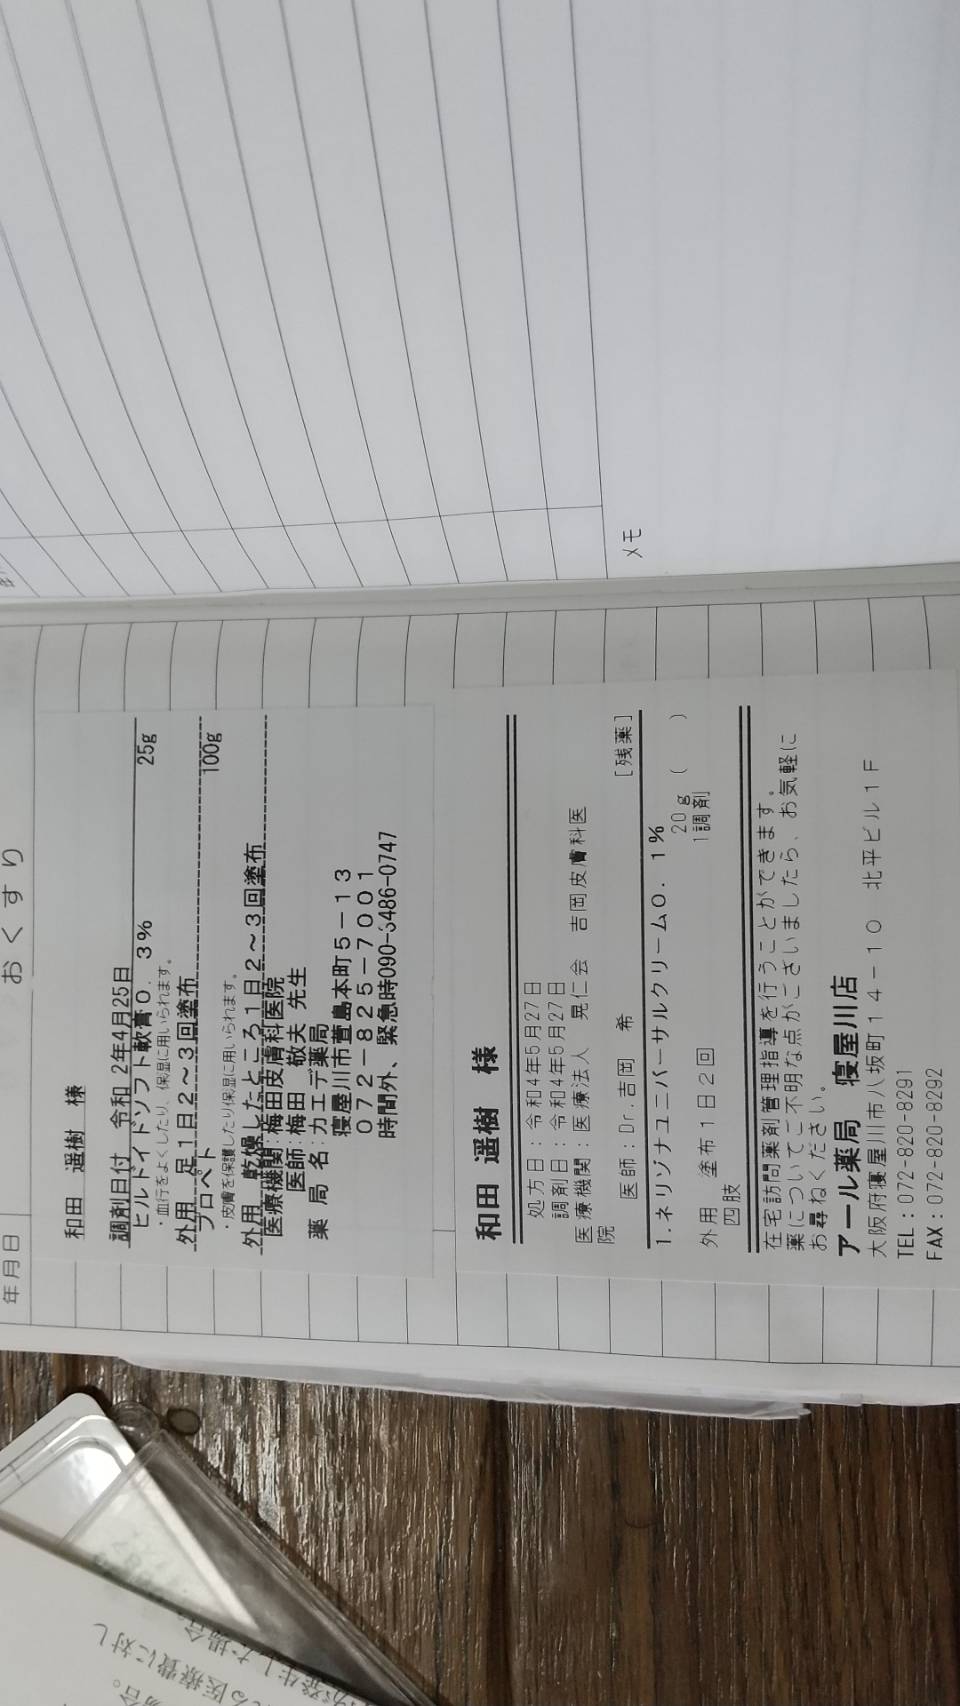 年月日
おくすり
和田 遥樹 様
調剤日付 令和 2年4月25日
ヒルドイドソフト軟膏0.3% 25g
・血行をよくしたり、保湿に用いられます。
外用 足 1日2~3回塗布
プロペト 100g
・皮膚を保護したり保湿に用いられます。
外用 乾燥したところ1日2~3回塗布
医療機関:梅田皮膚科医院
医師:梅田 敬夫 先生
薬局名:カエデ薬局
寝屋川市萱島本町5-13
072-825-7001
時間外、緊急時090-3486-0747
和田 遥樹 様
処方日:令和4年5月27日
調剤日:令和4年5月27日
医療機関:医療法人 晃仁会 吉岡皮膚科医
院
医師:Dr.吉岡 希 [残薬]
1.ネリゾナユニバーサルクリーム0.1%
20g ( )
外用 塗布1日2回 1調剤
四肢
在宅訪問薬剤管理指導を行うことができます。
薬についてご不明な点がございましたら、お気軽に
お尋ねください。
アール薬局 寝屋川店
大阪府寝屋川市八坂町14-10 北平ビル1F
TEL:072-820-8291
FAX:072-820-8292
メモ
場合。
る医療費に対し
が発生した場合